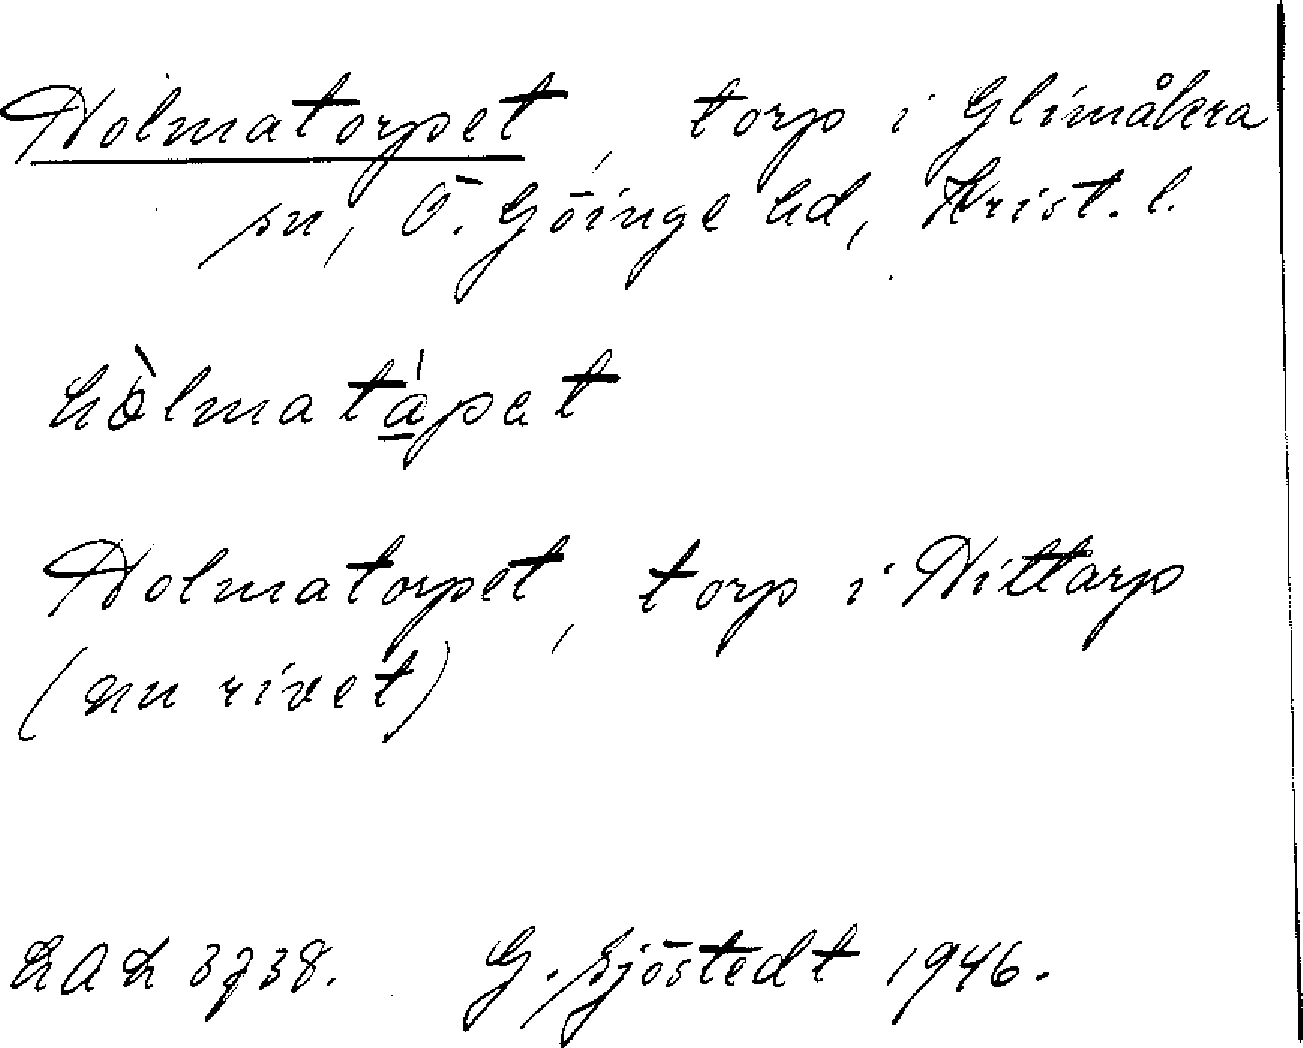 Holmatorpet, torp i Glimåkra
sn, Ö. Göinge hd, Krist. l.
hòlmatápat
Holmatorpet, torp i Hittarp
(nu rivet)
LAL 3738. G. Sjöstedt 1946.